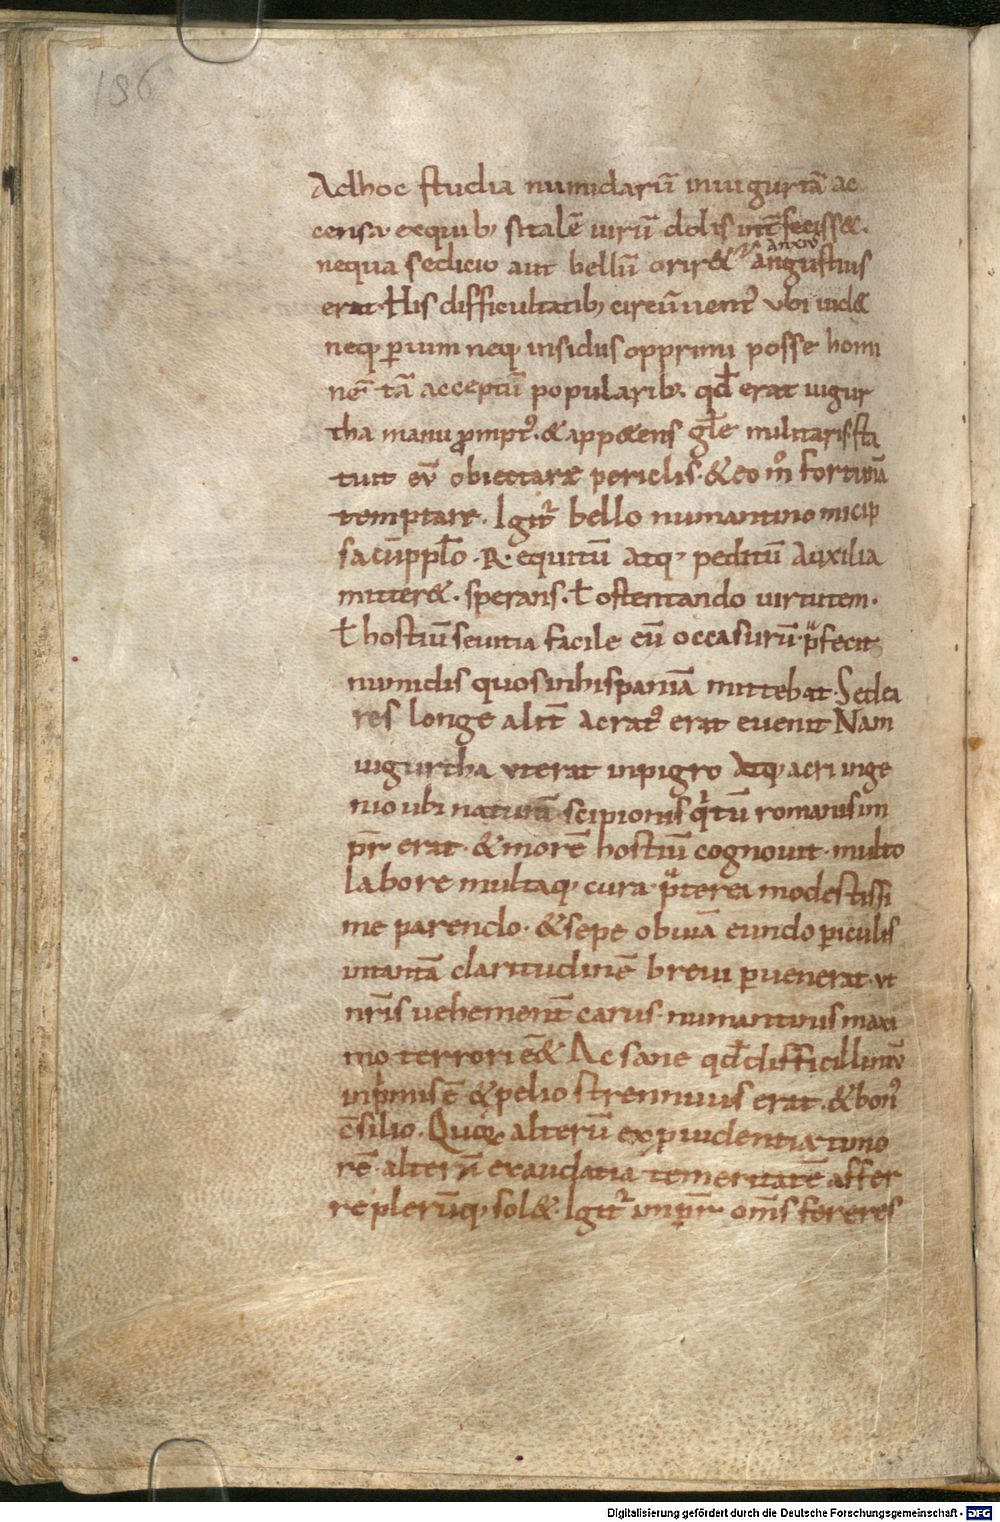 186
Adhoc studia numidarū iniugurtā ac
censa exquib; sitalē uirū dolis int̄fecisset.
nequa sedicio aut bellū oriret͛
anxiꝰ
angustius
erat. His difficultatib; circūuent᾿ Vbi uidet
neq; ꝑuim neq; insidiis opprimi posse homi
nē tā acceptū popularib;. qđ erat iugur
tha manu ꝓmpt᾿. & appetens gl̄e militaris. sta
tuit eū obiectare periclis. & eo m̊ fortunā
temptare. Igit᷑ bello numantino micip
sa cū ppl̄o .R. equitū atq; peditū Auxilia
mitteret. sperans. ł ostentando uirtutem.
ł hostiū seuitia facile eū occasurū. p̃fecit
numidis quos inhispaniā mittebat. Sed ea
res longe alit̄ acrat᾿ erat euenit Nam
iugurtha ut erat inpigro atq; acri inge
nio ubi naturā scipionis q̇ tū romanis im
pr̄ erat. & morē hostiū cognouit. multo
labore multaq; cura. p̃terea modestissi
me parendo. & sepe obuiā eundo ꝑiculis
intantā claritudinē breui ꝑuenerat. ut
nr̄is uehement̄ carus. numantinis maxi
mo terrori eēt Ac sane qđ difficillimū
inpͥmis ē & p̄elio strennuus erat. & bon᾿
c̄silio. Quoꝝ alterū ex ꝓuidentia timo
rē. alterū exaudatia temeritatē affer
re plerūq; solet. Igit᷑ inpr̄ om̄s fere res
Digitalisierung gefördert durch die Deutsche Forschungsgemeinschaft - DFG